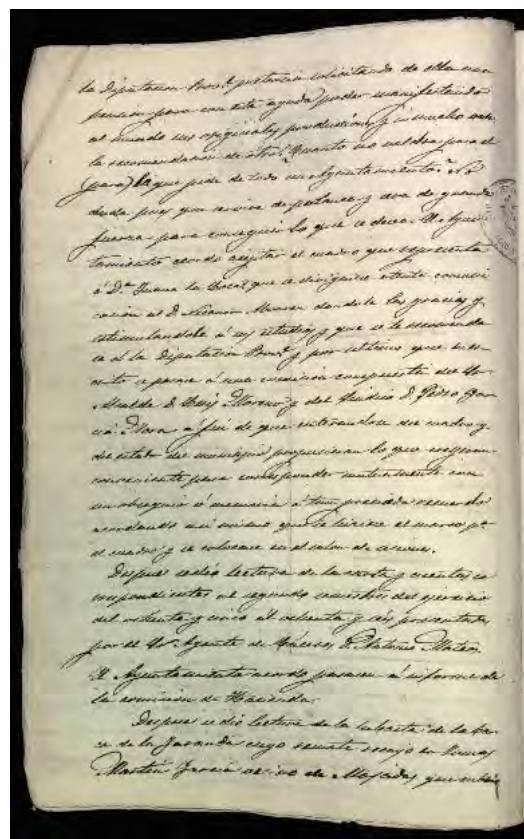 la Diputacion Prov.l pretencion solicitando de ella una
pension para con esta ayuda poder manifestando
al mundo sus originales producciones y
la recomendacion de otro. Quanto no valdra para el
(para) la que pide de todo un Ayuntamiento? No
duda pues que servira de palanca y sea de grande
fuerza para conseguir lo que se desea. El Ayun
tamiento acordo aceptar el cuadro que representa
á D.a Juana la Loca, que se dirigiese atenta comuni
cacion al D. Nicanor Alvarez dandole las gracias y
estimulandole á sus estudios y que se le recomenda
se á la Diputacion Prov.l y por ultimo que
se pase á una comision compuesta del Sr
Alcalde D. Luis Moreno y del Sindico D. Pedro Gar
cia Mora á fin de que enterandose del cuadro y
del estado del municipio propusieran lo que creyesen
conveniente para corresponder con
un obsequio ó memoria á tan preciado recuerdo
acordando asi mismo que se hiciese el marco p.a
el cuadro y se colocase en el salon de
Despues se dió lectura de la cuenta y cuentas co
rrespondientes al segundo semestre del ejercicio
del ochenta y cinco al ochenta y seis presentadas
por el Sr. Agente de Cáceres D. Antonio Mateos
El Ayuntamiento acordo pasasen á informe de
la comision de Hacienda.
Despues se dió lectura de la subasta de la
de la cuyo remate recayo en
Martin Garcia vecino de que